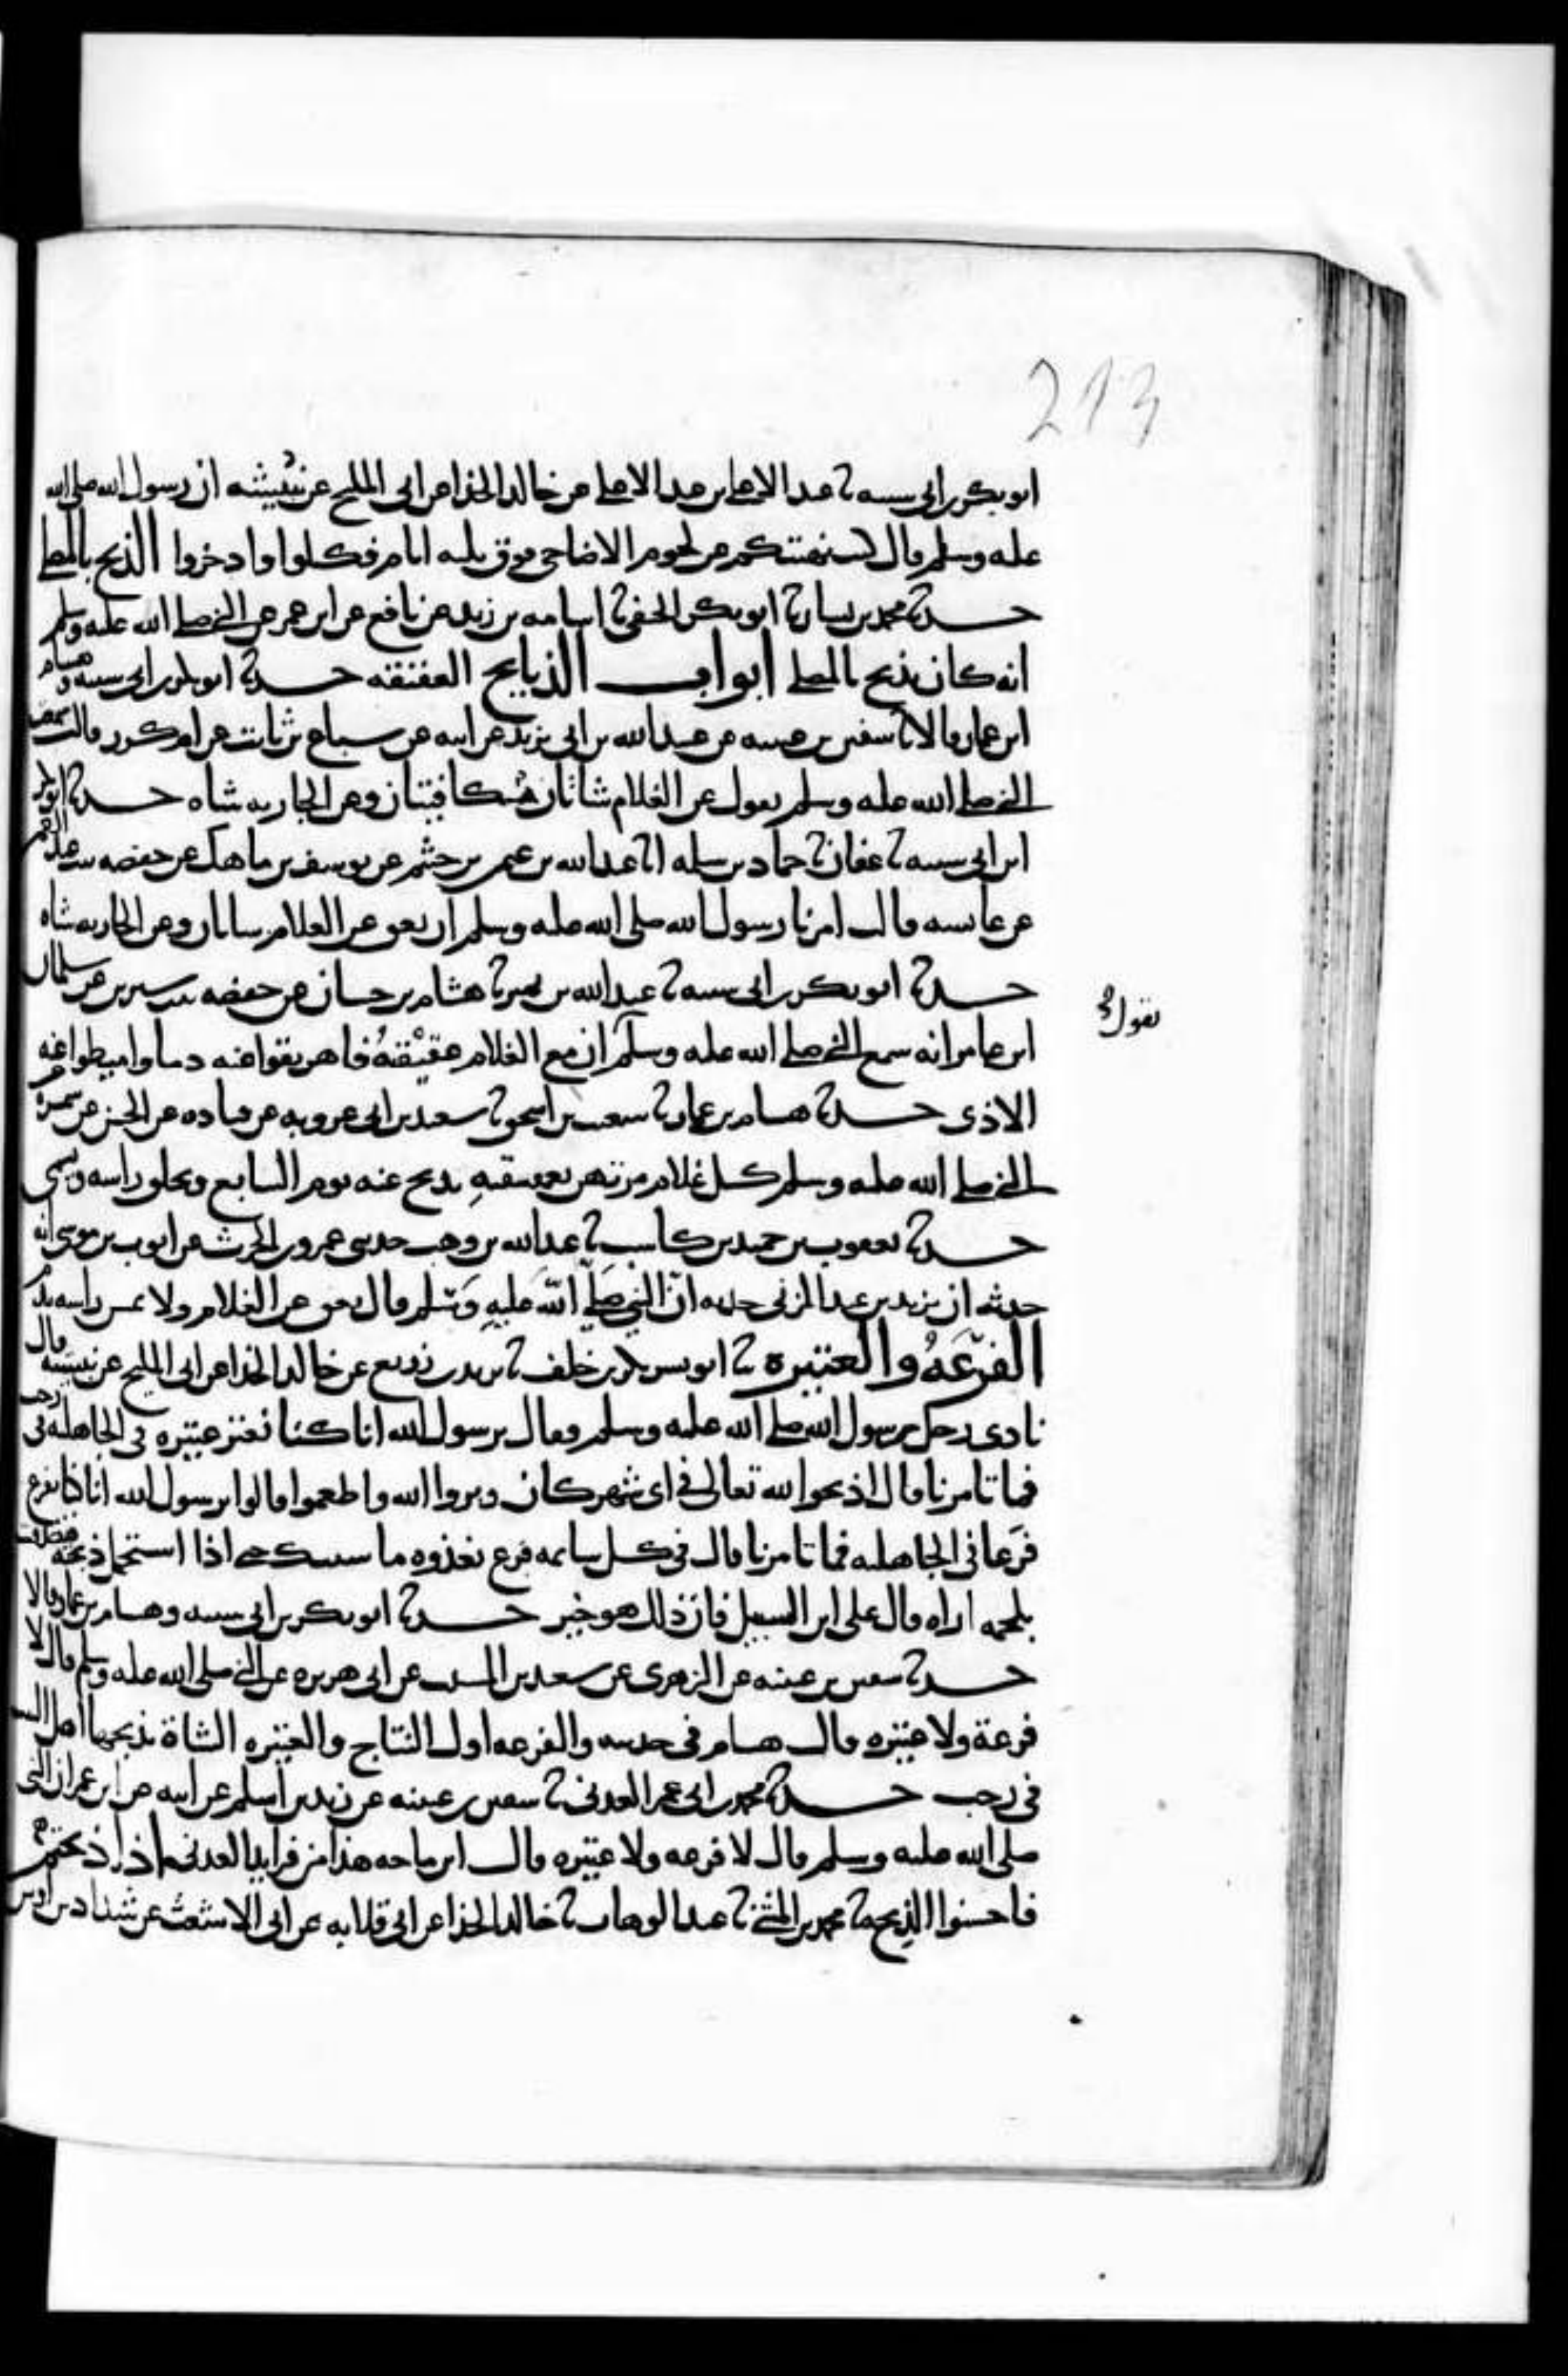 213
ابو بكر بن ابي شيبه نا عبد الاعلى بن عبد الاعلى عن خالد الحذا عن ابي المليح عن نُبَيشه ان رسول الله صلى الله
عليه وسلم قال كنت نهيتكم عن لحوم الاضاحي فوق ثلثه ايام فكلوا وادخروا الذبح بالمصلى
حدثنا محمد بن بشار نا ابو بكر الحنفي نا اسامه بن زيد عن نافع عن ابن عمر عن النبي صلى الله عليه وسلم
انه كان يذبح بالمصلى ابواب الذبايح العقيقه حدثنا ابو بكر بن ابي شيبه وهشام
ابن عمار قالا نا سفين بن عيينه عن عبيد الله بن ابي يزيد عن ابيه عن سباع بن ثابت عن ام كرز قالت سمعت
النبي صلى الله عليه وسلم يقول عن الغلام شاتان مُتكافيتان وعن الجاريه شاه حدثنا ابو بكر
ابن ابي شيبه نا عفان نا حماد بن سلمه انا عبد الله بن عثمن بن خثيم عن يوسف بن ماهك عن حفصه بنت عبد الرحمن
عن عائشه قالت امرنا رسول الله صلى الله عليه وسلم ان نعق عن الغلام شاتان وعن الجاريه شاه
حدثنا ابو بكر بن ابي شيبه نا عبد الله بن نمير نا هشام بن حسان عن حفصه بنت سيرين عن سلمان
يقول صح
ابن عامر انه سمع النبي صلى الله عليه وسلم ان مع الغلام عقيقتهُ فاهريقوا عنه دما واميطوا عنه
الاذى حدثنا هشام بن عمار نا شعيب بن اسحق نا سعيد بن ابي عروبه عن قتاده عن الحسن عن سمره عن
النبي صلى الله عليه وسلم كل غلام مرتهن بعقيقتهِ يذبح عنه يوم السابع ويحلق راسه ويسمى
حدثنا يعقوب بن حميد بن كاسب نا عبد الله بن وهب حدثني عمرو بن الحرث عن ايوب بن موسى انه
حدثه ان يزيد بن عبد المزني حدثه انّ النبي صَلّى اللّه عَليهِ وَسَلم قال يعق عن الغلام ولا يمس راسه بدم
الفرَعَهُ والعَتيره نا ابو بشر بكر بن خلف نا يزيد بن زريع عن خالد الحذا عن ابي المليح عن نبيشه قال
نادى رجل رسول الله صلى الله عليه وسلم فقال يرسول الله انا كنا نعتر عتيره في الجاهله في رجب
فما تامرنا قال اذبحوا لله تعالى في اي شهر كان وبروا الله واطعموا قالوا يرسول الله انا كنا نفرع
فرَعا في الجاهليه فما تامرنا قال في كل سايمه فرع تغذوه ماشيتك حتى اذا استحمل ذبحته فتصدقت
بلحمه اراه قال على ابن السبيل فان ذلك هو خير حدثنا ابو بكر بن ابي شيبه وهشام بن عمار قالا
حدثنا سفين بن عيينه عن الزهري عن سعيد بن المسيب عن ابي هريره عن النبي صلى الله عليه وسلم قال لا
فرعة ولا عتيره قال هشام في حديثه والفرعه اول النتاج والعتيره الشاة يذبحها اهل البيت
في رجب حدثنا محمد بن ابي عمر العدني نا سفين بن عيينه عن زيد بن اسلم عن ابيه عن ابن عمر ان النبي
صلى الله عليه وسلم قال لا فرعه ولا عتيره قال ابن ماجه هذا من فرايد العدني اذا ذبحتم
فاحسنوا الذِبحه نا محمد بن المثنى نا عبد الوهاب نا خالد الحذا عن ابي قلابه عن ابي الاشعث عن شداد بن اوس